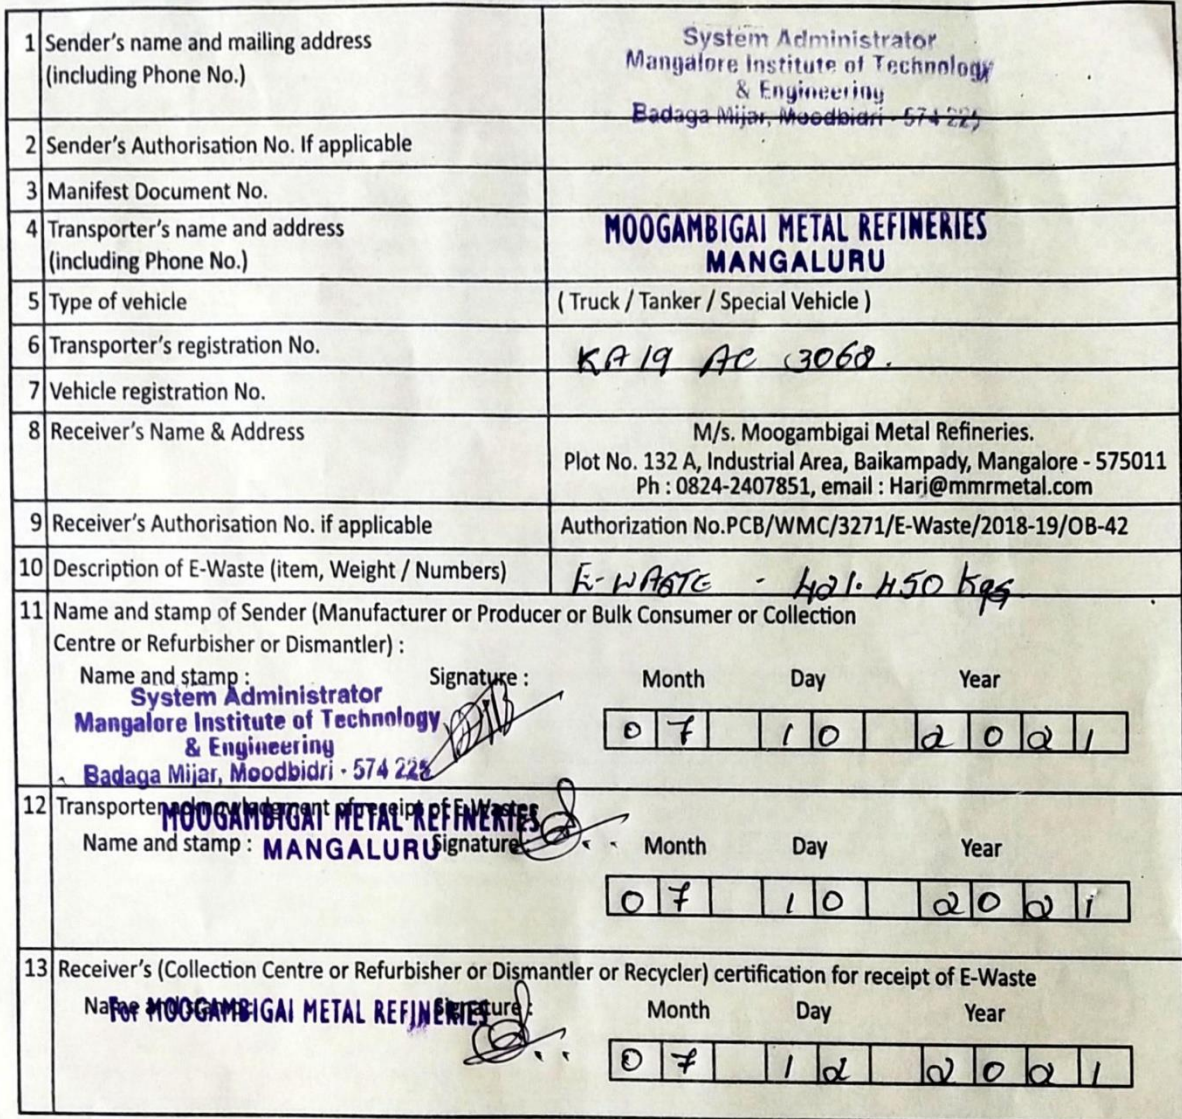 1 Sender's name and mailing address
(including Phone No.)
System Administrator
Mangalore Institute of Technology
& Engineering
Badaga Mijar, Moodbidri - 574 225
2 Sender's Authorisation No. If applicable
3 Manifest Document No.
4 Transporter's name and address
(including Phone No.)
MOOGAMBIGAI METAL REFINERIES
MANGALURU
5 Type of vehicle ( Truck / Tanker / Special Vehicle )
6 Transporter's registration No. KA 19 AC 3068.
7 Vehicle registration No.
8 Receiver's Name & Address
M/s. Moogambigai Metal Refineries.
Plot No. 132 A, Industrial Area, Baikampady, Mangalore - 575011
Ph : 0824-2407851, email : Harj@mmrmetal.com
9 Receiver's Authorisation No. if applicable Authorization No.PCB/WMC/3271/E-Waste/2018-19/OB-42
10 Description of E-Waste (item, Weight / Numbers) E-WASTE - 421.450 Kgs
11 Name and stamp of Sender (Manufacturer or Producer or Bulk Consumer or Collection
Centre or Refurbisher or Dismantler) :
Name and stamp : Signature : Month Day Year
System Administrator
Mangalore Institute of Technology
& Engineering
Badaga Mijar, Moodbidri - 574 225
07 10 2021
12 Transporter acknowledgment of receipt of E-Wastes
MOOGAMBIGAI METAL REFINERIES
Name and stamp : MANGALURU Signature Month Day Year
07 10 2021
13 Receiver's (Collection Centre or Refurbisher or Dismantler or Recycler) certification for receipt of E-Waste
Name and stamp : Signature : Month Day Year
For MOOGAMBIGAI METAL REFINERIES
07 12 2021